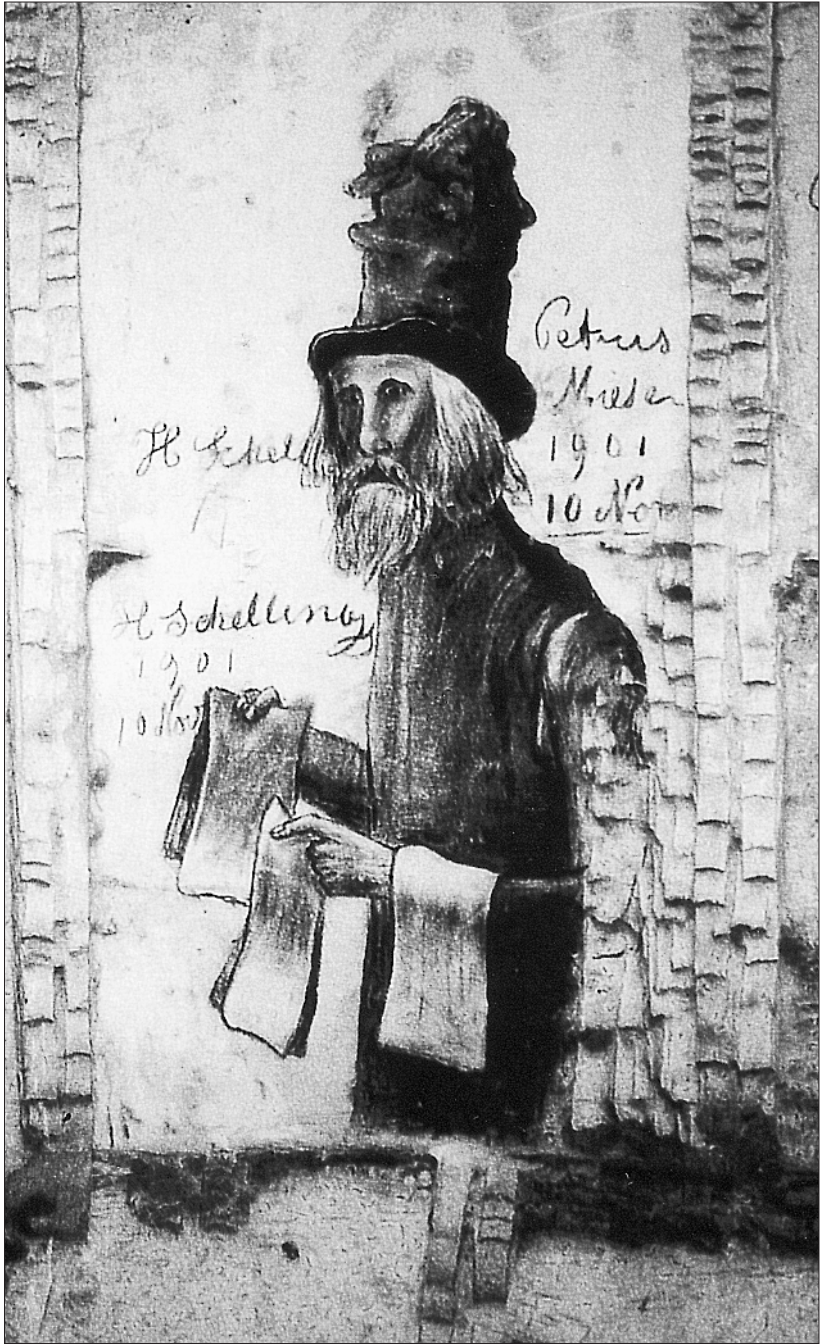 Petrus
1901
10 Nov
H Schell
H Schellings
1901
10 Nov